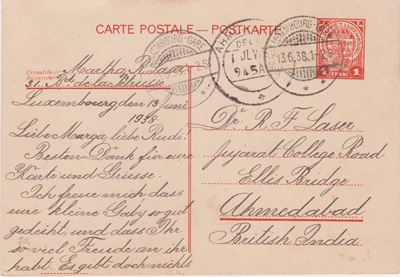 CARTE POSTALE — POSTKARTE
LUXEMBOURG-GARE
DEL
1 JLY
945A
LUXEMBOURG-
13.6.38.1
1 FRANC 1
Expéditeur
Absender
Martha R. Laser
Luxembourg den 13 Juni
1938
Liebe Marga, liebe Rudi!
Besten Dank für eure
Karte und Grüsse.
Ich freue mich dass
eure kleine Gaby so gut
gedeiht und dass Ihr
so viel Freude an ihr
habt. Es gibt doch nichts
Dr. R. F. Laser
Gujarat College Road
Ellis Bridge
Ahmedabad
British India.